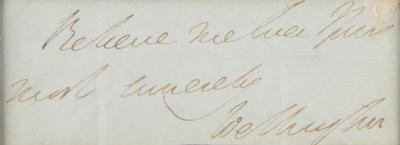 Believe me Ever Yours
most sincerely
Wellington